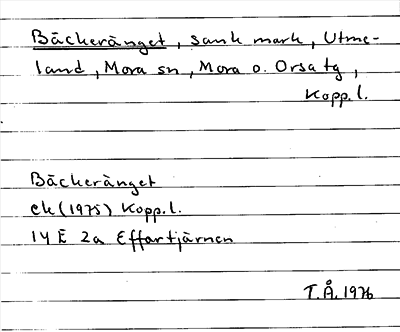 Bäckeränget, sank mark, Utme-
land, Mora sn, Mora o. Orsa tg,
Kopp.l.
Bäckeränget
ek (1975) Kopp.l.
14 E 2a Effartjärnen
T.Å. 1976